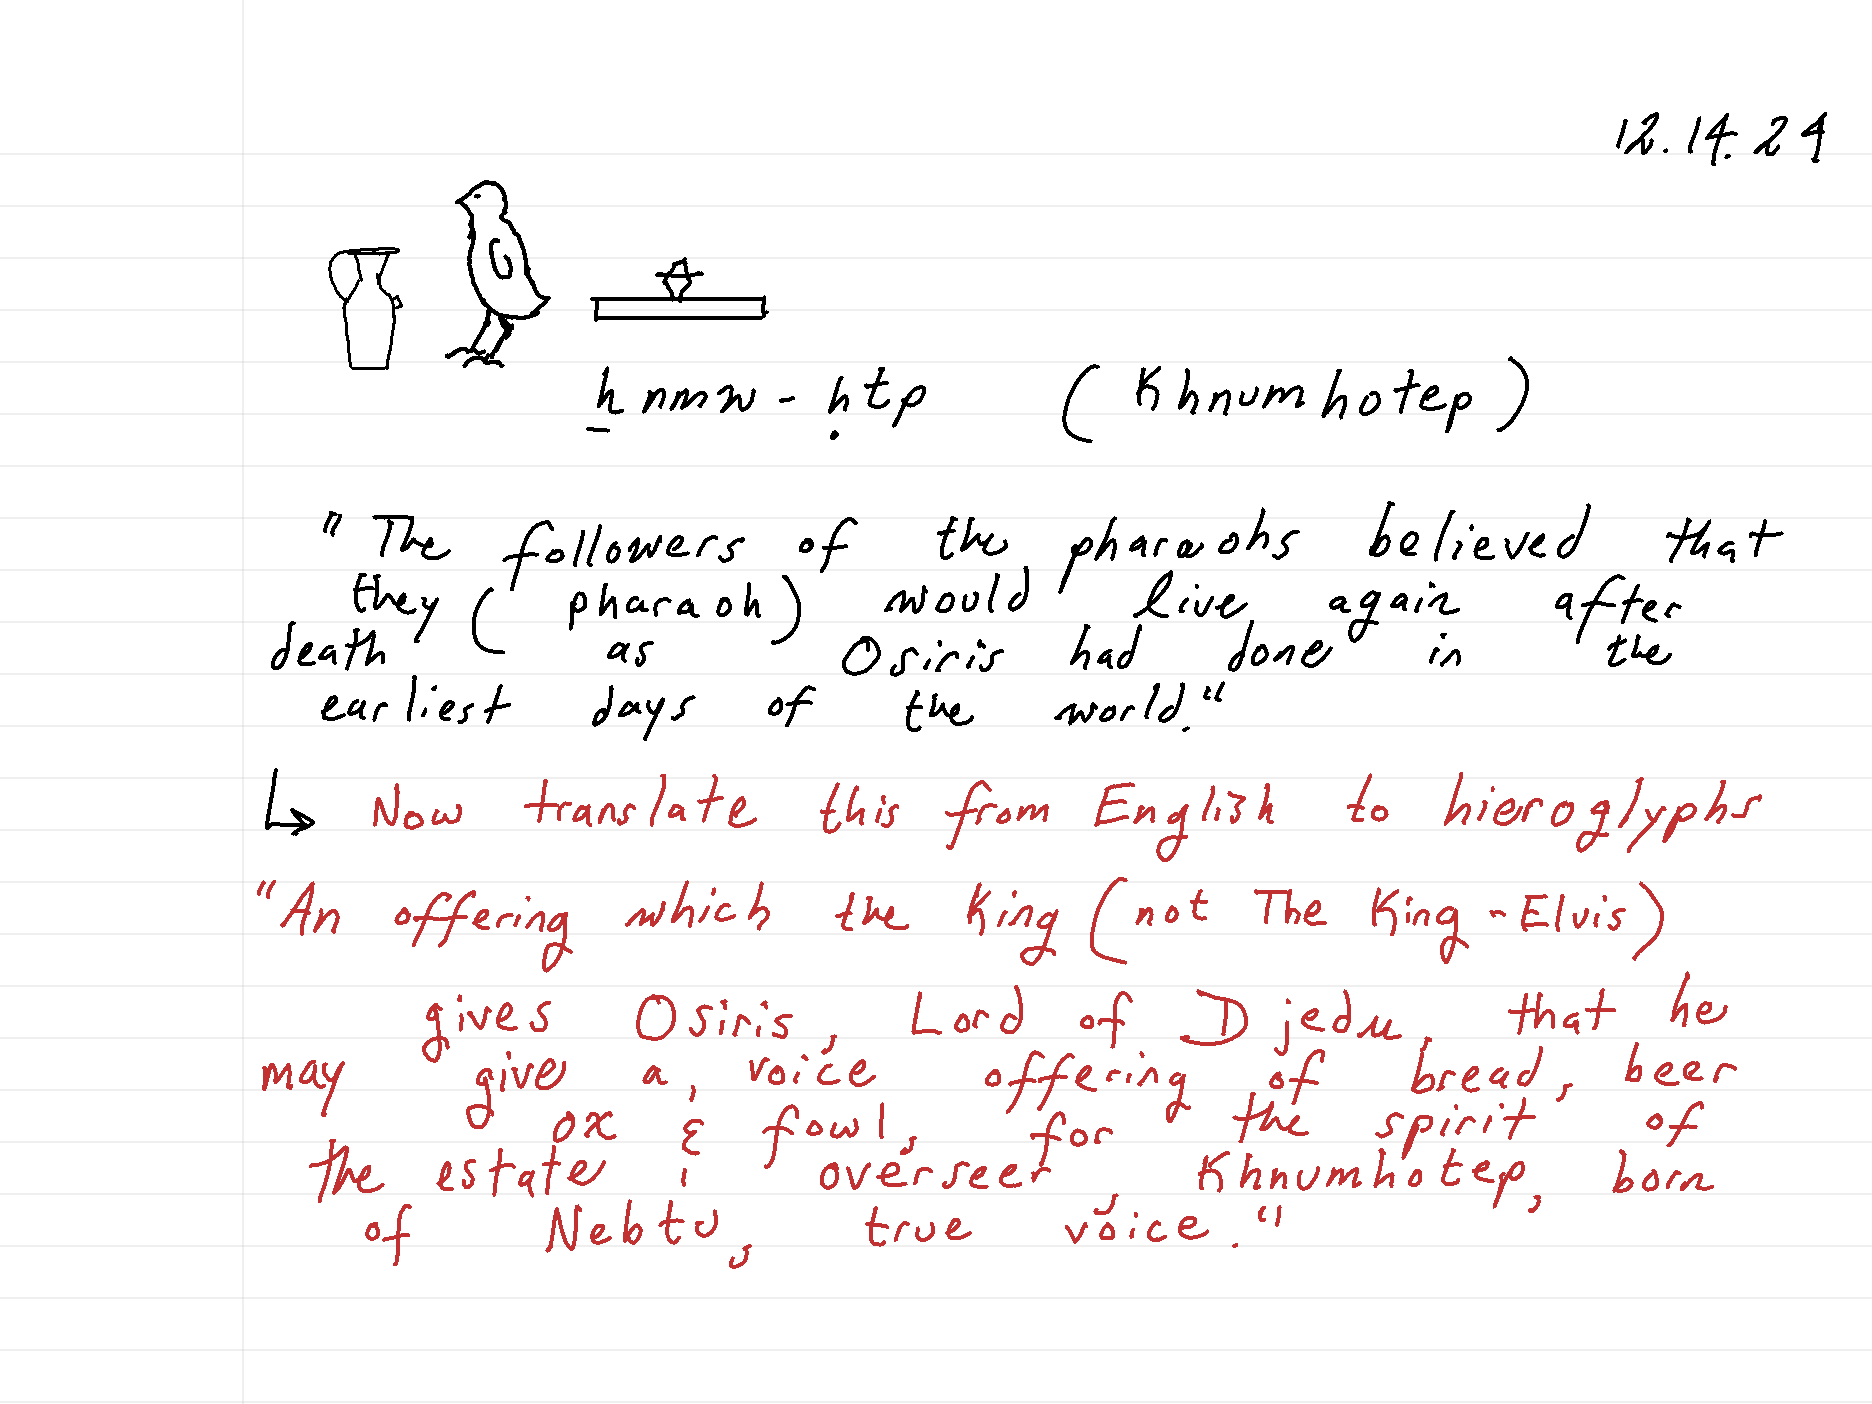 12.14.24
ẖnmw-ḥtp (Khnumhotep)
"The followers of the pharaohs believed that
they (pharaoh) would live again after
death as Osiris had done in the
earliest days of the world."
↳ Now translate this from English to hieroglyphs
"An offering which the King (not The King - Elvis)
gives Osiris, Lord of Djedu, that he
may give a, voice offering of bread, beer
ox & fowl, for the spirit of
the estate overseer, Khnumhotep, born
of Nebtu, true voice."